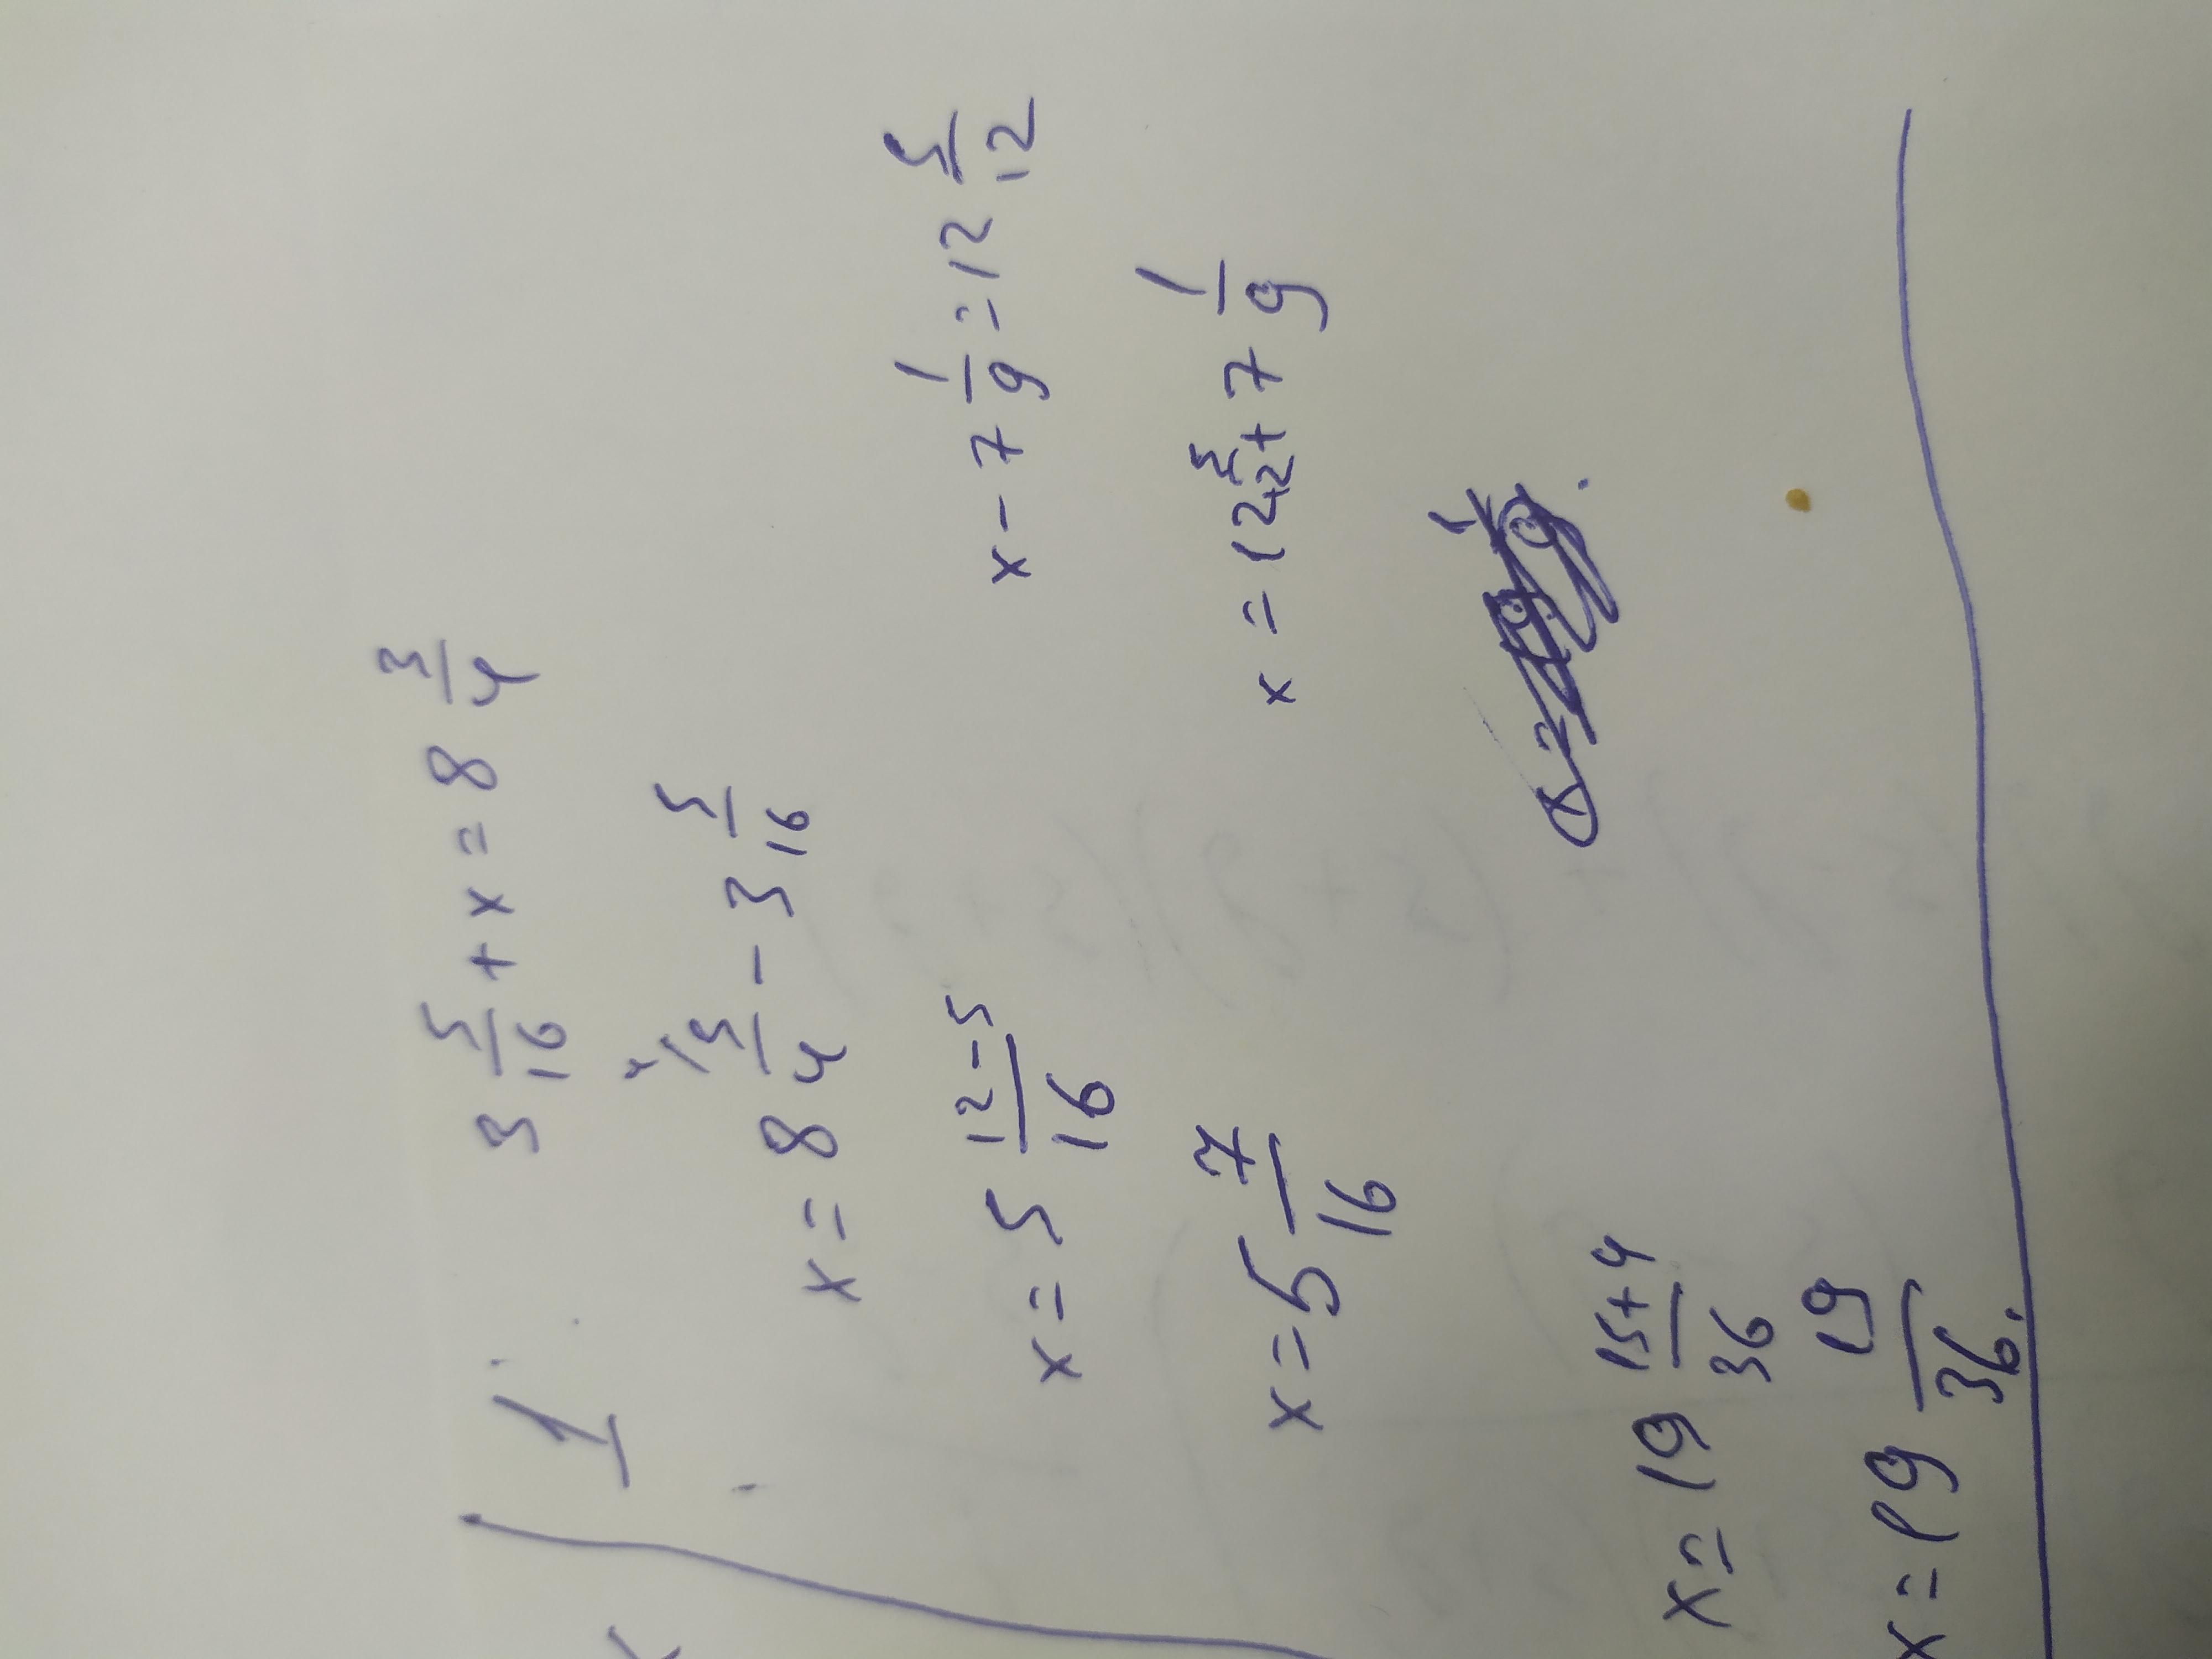 1
3 5/16 + x = 8 3/4
x = 8 3/4 \4 - 3 5/16
x = 5 12-5/16
x = 5 7/16
x - 7 1/9 = 12 5/12
x = 12 5/12 + 7 1/9
x = 19 15+4/36
x = 19 19/36.